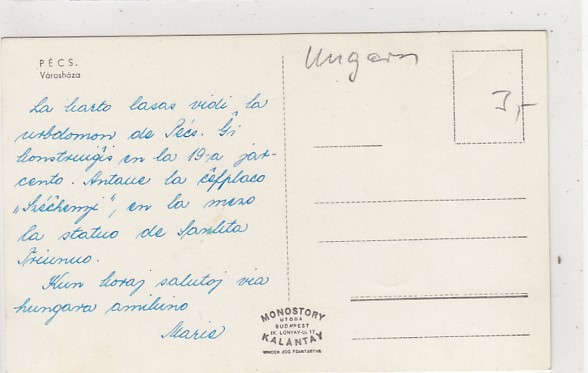 PÉCS.
Városháza
La karto lasas vidi la
urbdomon de Pécs. Ĝi
konstruiĝis en la 19-a jar-
cento. Antaue la ĉefplaco
„Széchenyi", en la mezo
la statuo de Sankta
Triunuo.
Kun koraj salutoj via
hungara amikino
Marie
Ungarn
3,-
MONOSTORY
UTODA
BUDAPEST
IX. LÓNYAY-U. 17
KALANTAY
MINDEN JOG FENNTARTVA